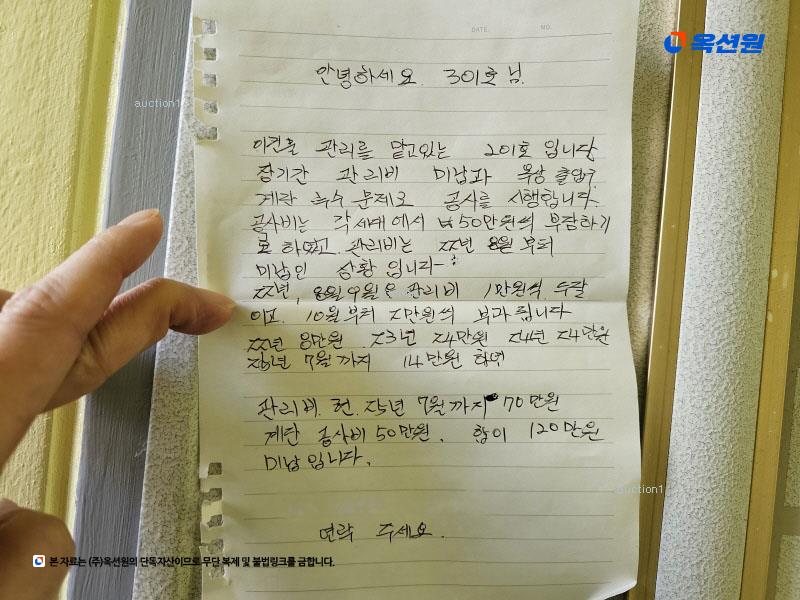 DATE. NO.
옥션원
안녕하세요. 301호 님.
auction1
이건물 관리를 맡고있는 201호 입니다.
장기간 관리비 미납과 옥상 출입구
계단 누수 문제로 공사를 시행합니다.
공사비는 각세대에서 50만원씩 부담하기
로 하였고 관리비는 22년 8월 부터
미납인 상황 입니다
22년, 8월 9월은 관리비 1만원씩 두달
이고. 10월부터 2만원씩 부과 됩니다
22년 8만원 23년 24만원 24년 24만원
25년 7월까지 14만원 하면
관리비. 현. 25년 7월까지 70만원
계단 공사비 50만원. 합이 120만원
미납 입니다.
auction1
연락 주세요.
본 자료는 (주)옥션원의 단독자산이므로 무단 복제 및 불법링크를 금합니다.